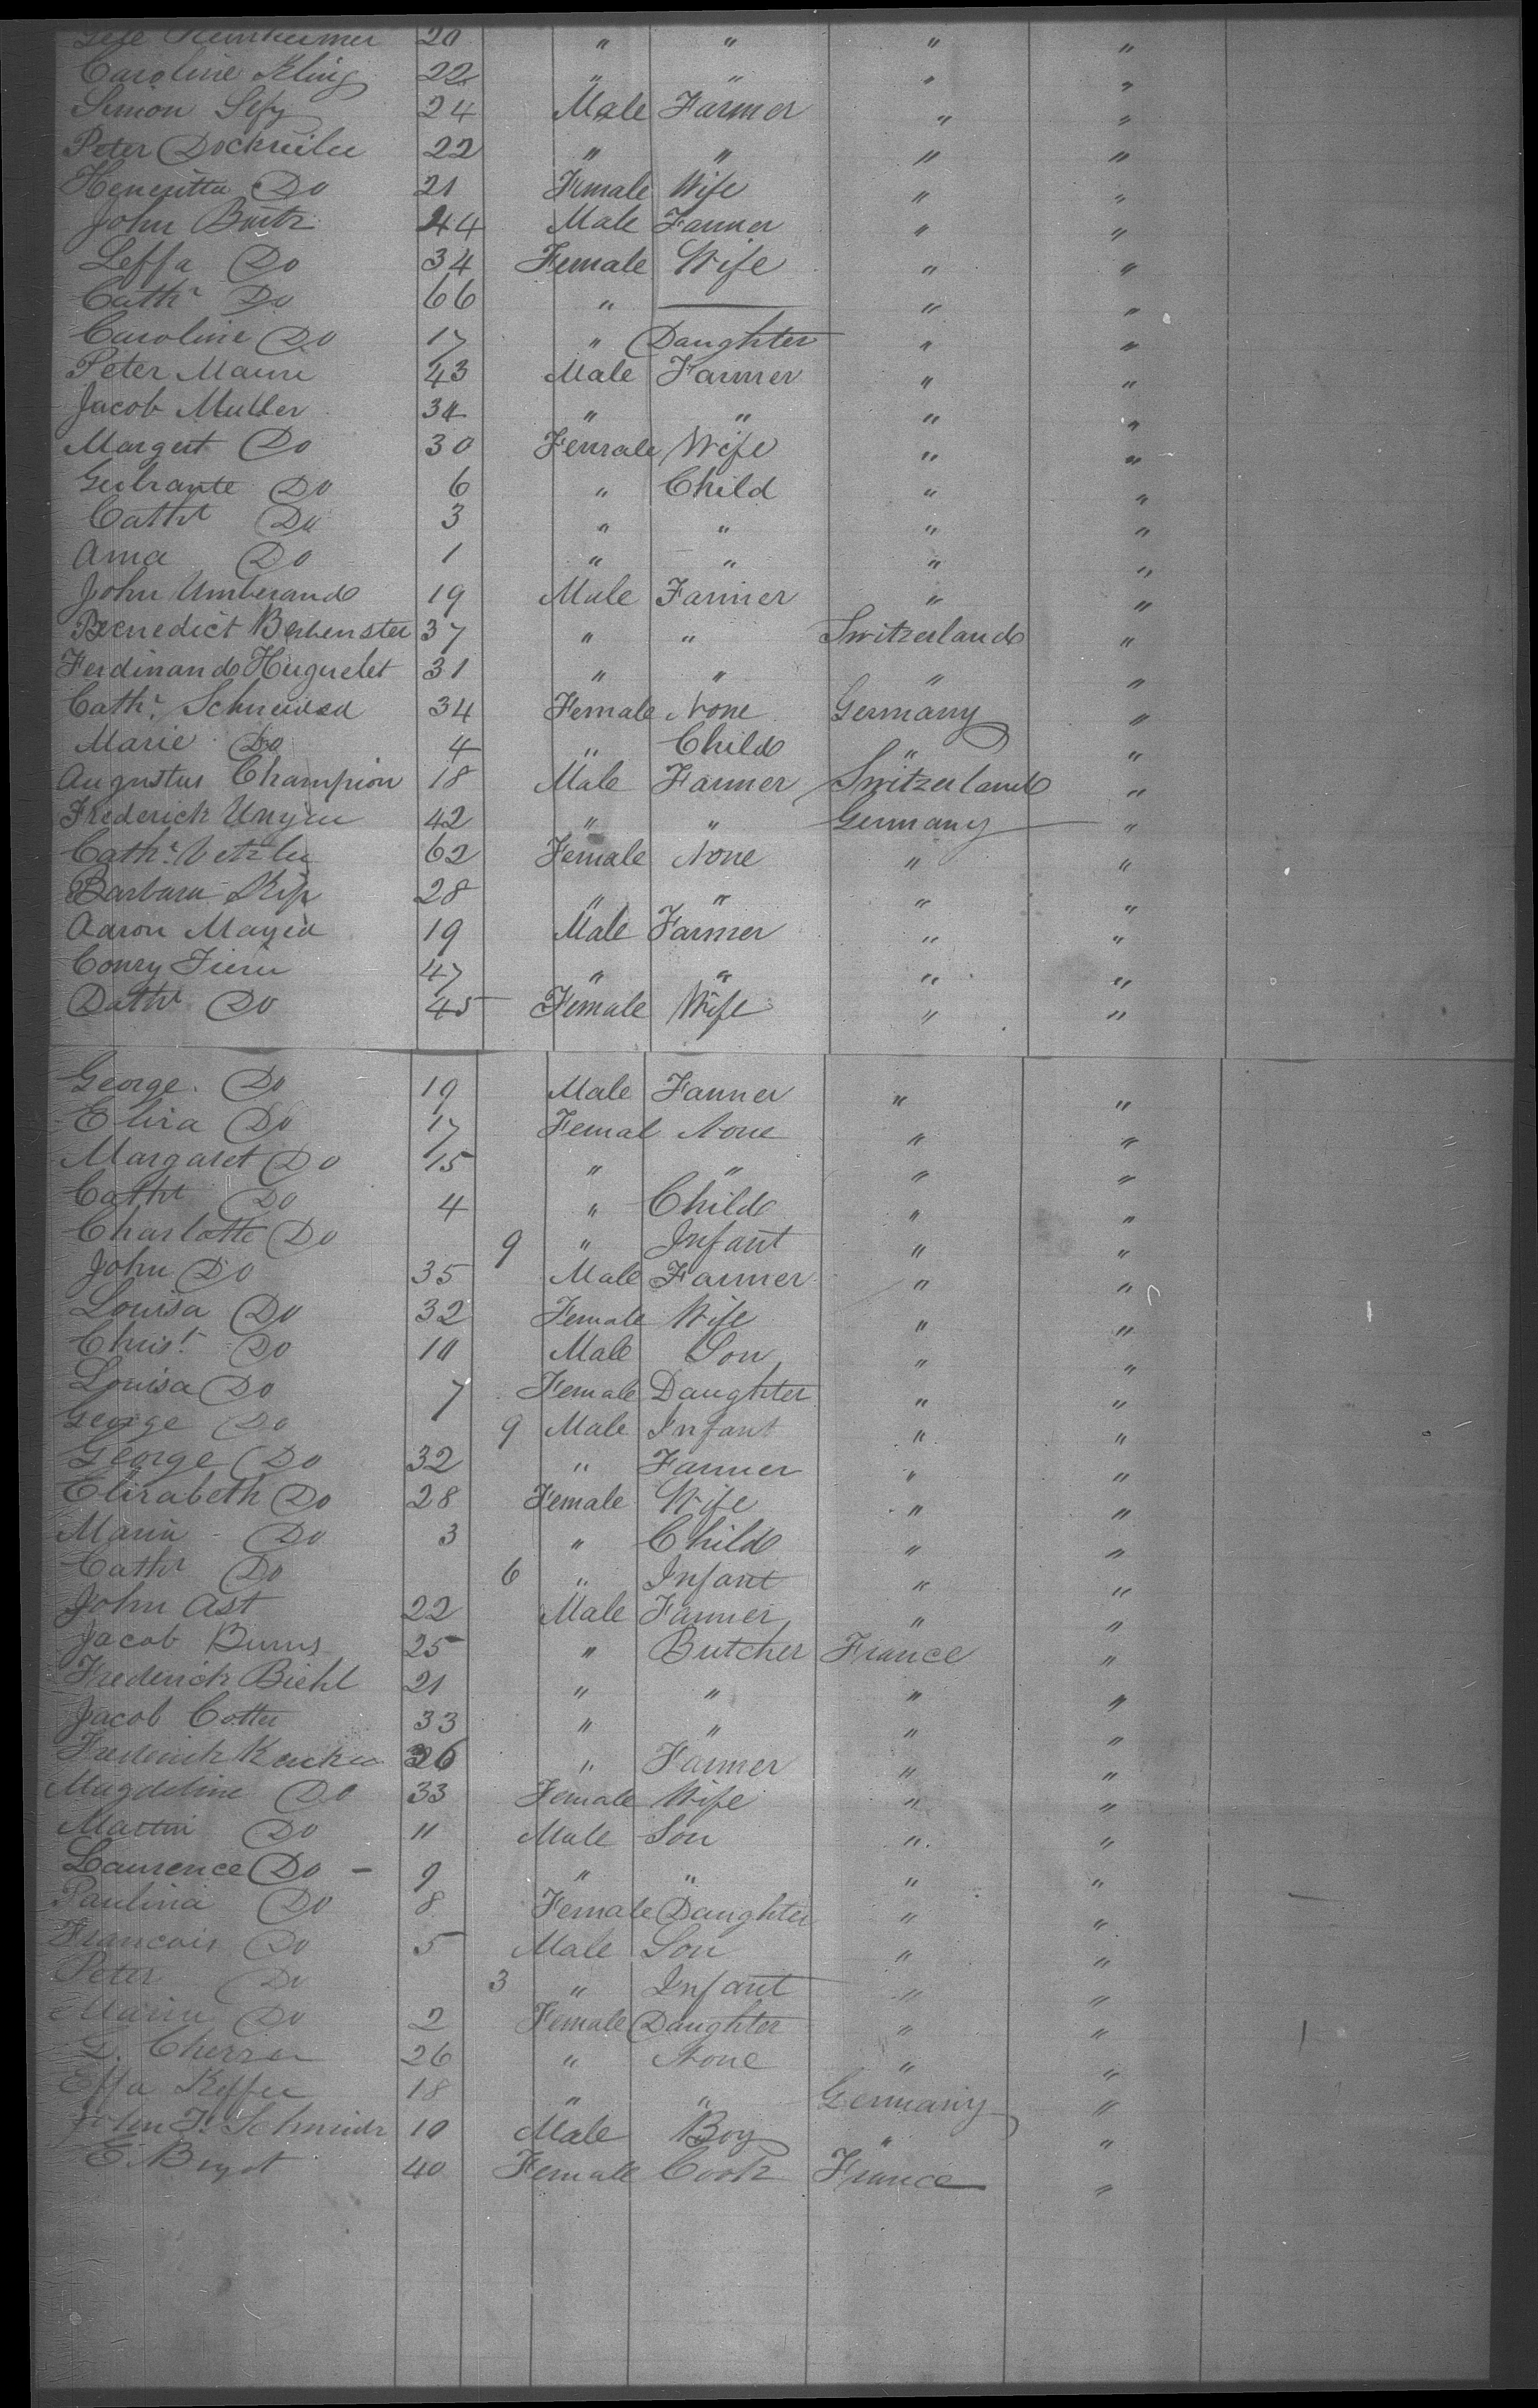 20 " " " "
Caroline Kling 22 " " " "
Simon 24 Male Farmer " "
Peter 22 " " " "
Heneritta Do 21 Female Wife " "
John 44 Male Farmer " "
Leffa Do 34 Female Wife " "
Cathr Do 66 " — " "
Caroline Do 17 " Daughter " "
Peter 43 Male Farmer " "
Jacob Muller 34 " " " "
Margert Do 30 Female Wife " "
Do 6 " Child " "
Catht Do 3 " " " "
Ama Do 1 " " " "
John Umberand 19 Male Farmer " "
Benedict 37 " " Switzerland "
Ferdinand Huguelet 31 " " " "
Cathr. 34 Female None Germany "
Marie Do 4 " Child " "
Augustus Champion 18 Male Farmer Switzerland "
Frederick 42 " " Germany "
Cathr. 62 Female None " "
Barbara 28 " " " "
Aaron 19 Male Farmer " "
47 " " " "
Do 45 Female Wife " "
George. Do 19 Male Farmer " "
Eliza Do 17 Femal None " "
Margaret Do 15 " " " "
Catht Do 4 " Child " "
Charlotte Do 9 " Infant " "
John Do 35 Male Farmer " "
Louisa Do 32 Female Wife " "
Christ. Do 10 Male Son " "
Louisa Do 7 Female Daughter " "
George Do 9 Male Infant " "
George Do 32 " Farmer " "
Elizabeth Do 28 Female Wife " "
Do 3 " Child " "
Catht Do 6 " Infant " "
John Ast 22 Male Farmer " "
Jacob Burns 25 " Butcher France "
Frederick Biehl 21 " " " "
Jacob Cotter 33 " " " "
Frederick " Farmer " "
Magdeline Do 33 Female Wife " "
Martin Do 11 Male Son " "
Laurence Do - 9 " " " "
Paulina Do 8 Female Daughter " "
Francois Do 5 Male Son " "
Peter Do 3 " Infant " "
Do 2 Female Daughter " "
26 " None " "
Effa 18 " " Germany "
John 10 Male Boy " "
E. 40 Female Cook France "